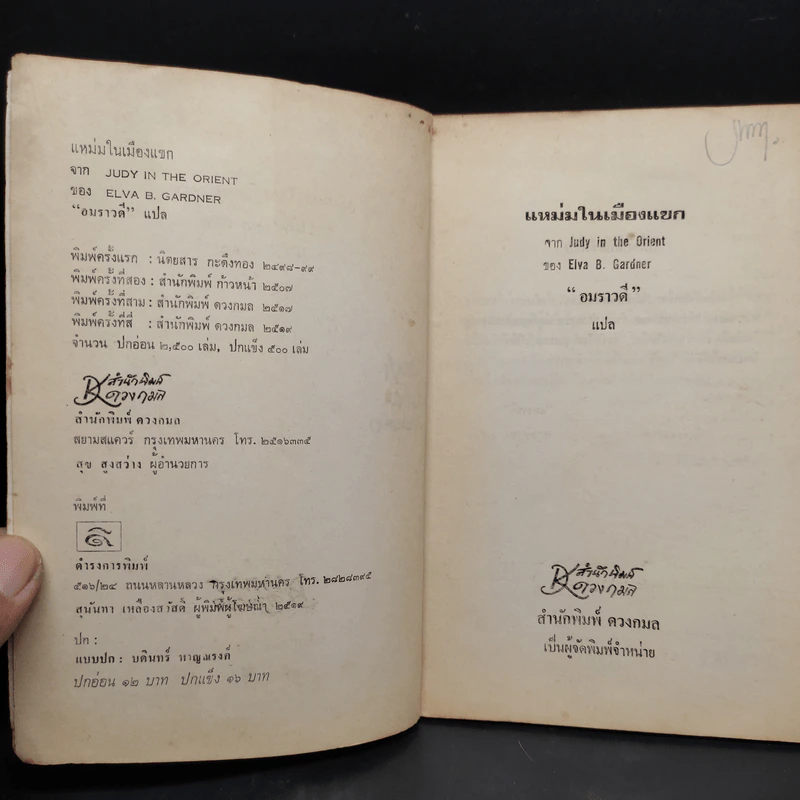 แหม่มในเมืองแขก
จาก JUDY IN THE ORIENT
ของ ELVA B. GARDNER
“อมราวดี” แปล
พิมพ์ครั้งแรก : นิตยสาร กะดึงทอง ๒๔๙๘-๙๙
พิมพ์ครั้งที่สอง : สำนักพิมพ์ ก้าวหน้า ๒๕๐๗
พิมพ์ครั้งที่สาม : สำนักพิมพ์ ดวงกมล ๒๕๑๗
พิมพ์ครั้งที่สี่ : สำนักพิมพ์ ดวงกมล ๒๕๑๙
จำนวน ปกอ่อน ๒,๕๐๐ เล่ม, ปกแข็ง ๕๐๐ เล่ม
สำนักพิมพ์
ดวงกมล
สำนักพิมพ์ ดวงกมล
สยามสแควร์ กรุงเทพมหานคร โทร. ๒๕๑๖๓๓๕
สุข สูงสว่าง ผู้อำนวยการ
พิมพ์ที่
ดำรงการพิมพ์
๕๑๖/๒๔ ถนนหลานหลวง กรุงเทพมหานคร โทร. ๒๘๒๘๓๙๕
สุนันทา เหลืองสวัสดิ์ ผู้พิมพ์ผู้โฆษณา ๒๕๑๙
ปก :
แบบปก : บดินทร์
ปกอ่อน ๑๒ บาท ปกแข็ง ๑๖ บาท
แหม่มในเมืองแขก
จาก Judy in the Orient
ของ Elva B. Gardner
“อมราวดี”
แปล
สำนักพิมพ์
ดวงกมล
สำนักพิมพ์ ดวงกมล
เป็นผู้จัดพิมพ์จำหน่าย